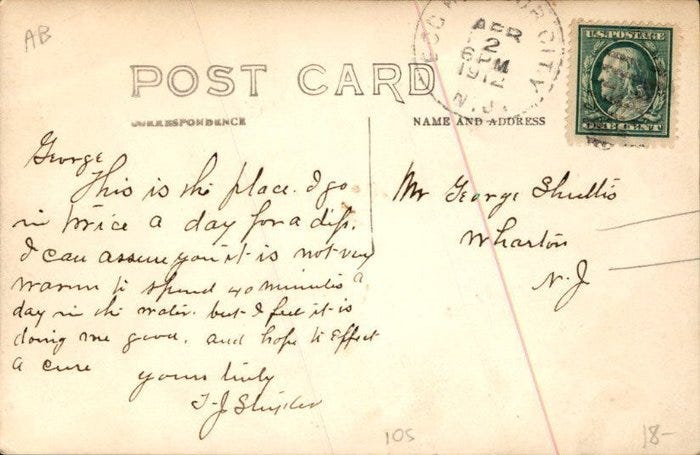 AB
EGG HARBOR CITY
APR
2
6 PM
1912
N.J.
U.S. POSTAGE
ONE CENT
POST CARD
CORRESPONDENCE
NAME AND ADDRESS
George
This is the place. I go
in twice a day for a dip.
I can assure you it is not very
warm to spend 40 minutes a
day in the water. but I feel it is
doing me good. and hope to effect
a cure
yours truly
Mr George Shultis
Wharton
N.J
105
18-